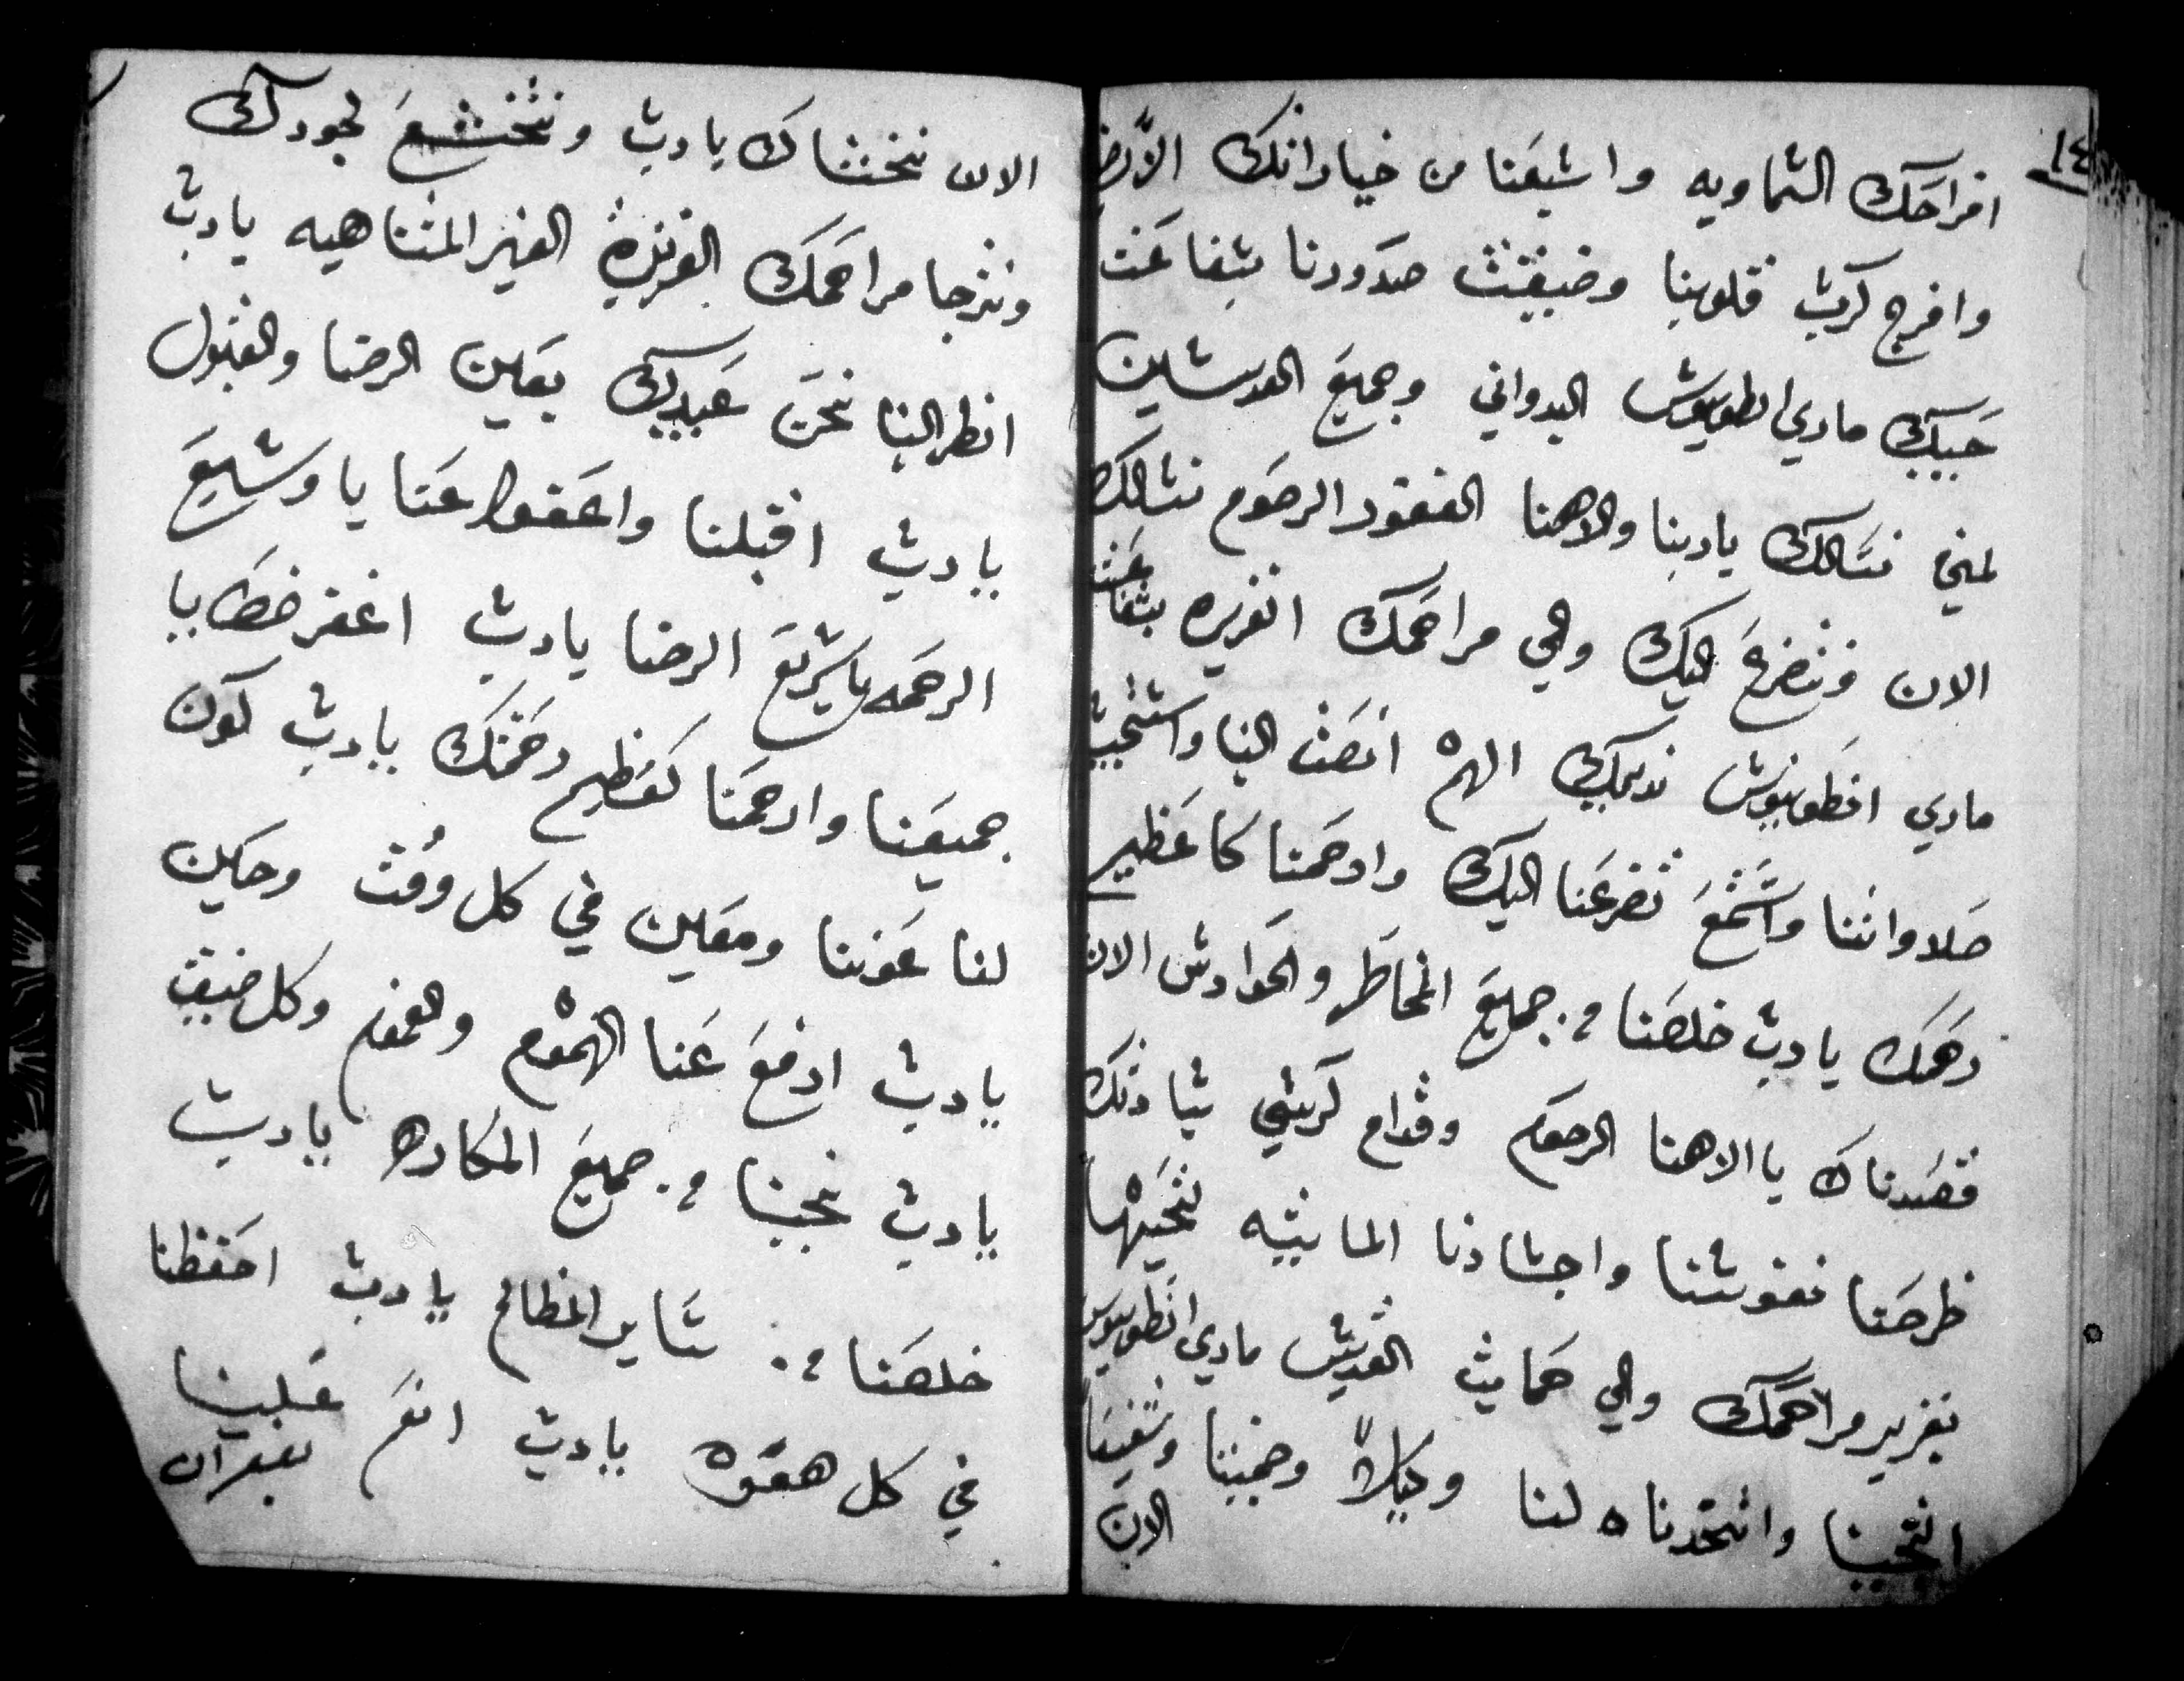 ١٤
افراحك السماويه واشبعنا من خيراتك الارض
وافرج كرب قلوبنا وضيقت صدورنا بشفاعت
حبيبك ماري انطونيوس البدواني وجميع القديسين
امين نسالك ياربنا والاهنا الغفور الرحوم نسالك
الان ونتضرع اليك والي مراحمك الغزيره بشفاعت
ماري انطونيوس نديمك اللهم انصت الينا واستجيب
صلاواتنا واستمع تضرعنا اليك وارحمنا كاعظيم
رحمتك يارب خلصنا من جميع المخاطر والحوادس الان
قصدناك يا الاهنا الرحوم وقدام كرسي سيادتك
طرحنا نفوسنا واجسادنا المايتيه لتحييها
بغزير مراحمك والي حمايت القديس ماري انطونيوس
التجينا واتخدناه لنا وكيلاً وضمينا وشفيعا
الان
الان نخشاك يارب ونخشع لجودك
ونترجا مراحمك الغزيرة الغير المتناهيه يارب
انظر الينا نحن عبيدك بعين الرضا والقبول
يارب اقبلنا واعفوا عنا يا وسيع
الرحمه ياسريع الرضا يارب اغفر خطايا
جميعنا وارحمنا كعظيم رحمتك يارب كون
لنا عوننا ومعين في كل وقت وحين
يارب ارفع عنا الهموم والغموم وكل ضيق
يارب نجينا من جميع المكاره يارب
خلصنا من ساير المظالم يارب احفظنا
في كل هفوه يارب انعم علينا
بغفران